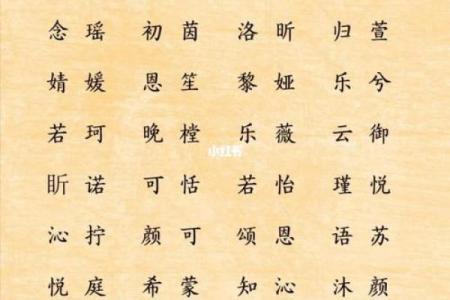 念瑶 初茵 洛昕 归萱
婧媛 恩笙 黎娅 乐兮
若珂 晚樘 乐薇 云御
小红书
昕诺 可恬 若怡 瑾悦
沁拧 颜可 颂恩 语苏
悦庭 希蒙 知沁 沐颜